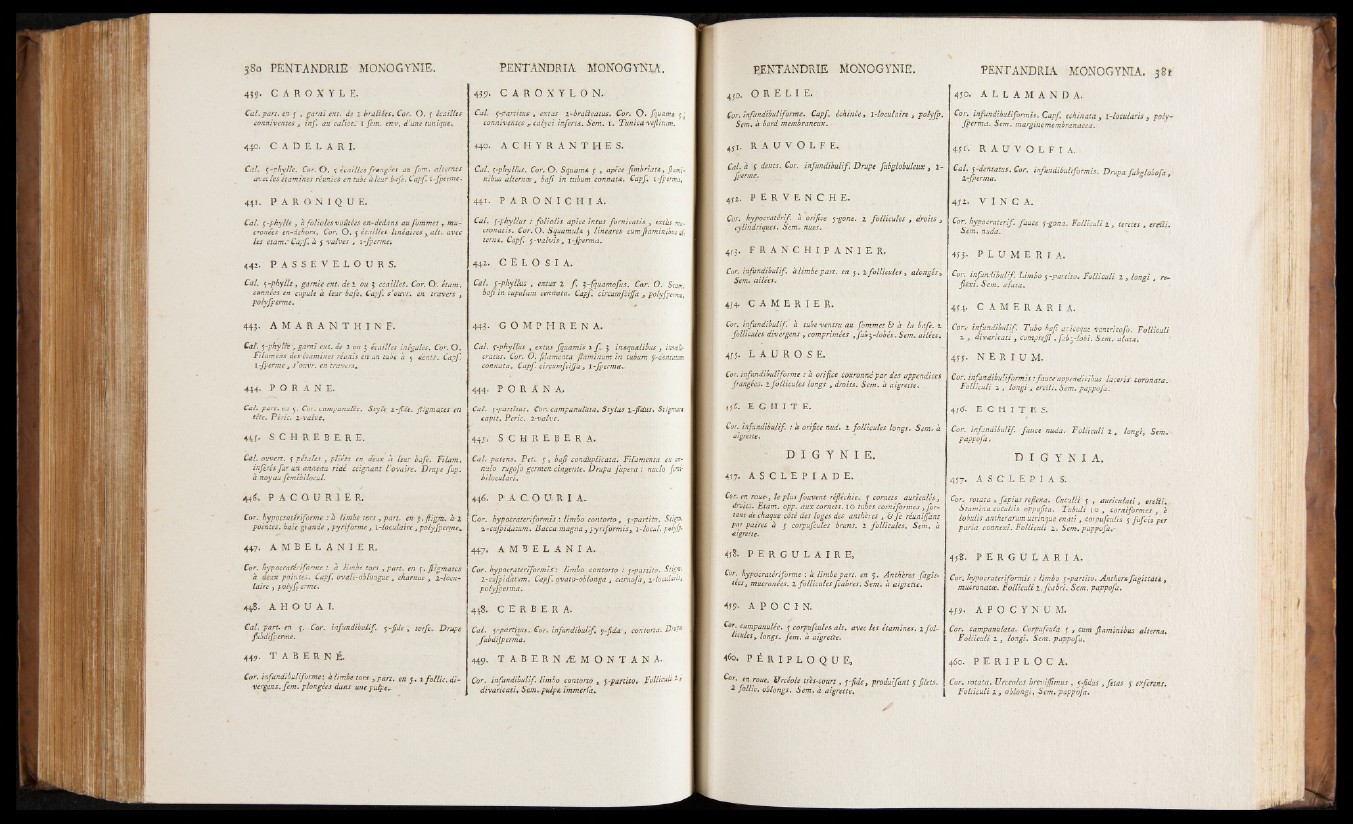 380 PENTANDRIE MONOGYNIE.
439. CAROXYLE.
Cal. part. en 5, garni ext. de 2 bractées. Cor. O. 5 écailles
conniventes, inf. au calice. 1 sem. env. d'une tunique.
440. CADELARI.
Cal. 5-phylle. Cor. O. 5 écailles frangées au som. alternes
avec les étamines réunies en tube à leur base. Caps. 1-sperme.
441. PARONIQUE.
Cal. 5-phylle, à folioles voûtées en-dedans au sommet, mu-
cronées en-dehors. Cor. O. 5 écailles linéaires, alt. avec
les etam. Caps. à 5 valves, 1-sperme.
442. PASSEVELOURS.
Cal. 5-phylle, garnie ext. de 2 ou 3 écailles. Cor. O. étam.
connées en cupule à leur base. Caps. s'ouvr. en travers,
polysperme.
443. AMARANTHINE.
Cal. 5-phylle, garni ext. de 2 ou 3 écailles inégales. Cor. O.
Filamens des étamines réunis en un tube à 5 dents. Caps.
1-sperme, s'ouvr. en travers.
444. PORANE.
Cal. part. en 5. Cor. campanulée. Style 2-fide. stigmates en
tête. Péric. 2-valve.
445. SCHREBERE.
Cal. ouvert. 5 pétales, pliées en deux à leur base. Filam.
insérés sur un anneau ridé ceignant l'ovaire. Drupe sup.
à noyau semibilocul.
446. PACOURIER.
Cor. hypocratériforme : à limbe tors, part. en 5. stigm. à 2
pointes. baie grande, pyriforme, 1-loculaire, polysperme.
447. AMBELANIER.
Cor. hypocratériforme : à limbe tors, part. en 5. stigmates
à deux pointes. Caps. ovale-oblongue, charnue, 2-locu-
laire, polysperme.
448. AHOUAI.
Cal. part. en 5. Cor. infundibulif. 5-fide, torse. Drupe
subdisperme.
449. TABERNÉ.
Cor. infundibuliforme : à limbe tors, part. en 5. 2 follic. di-
vergens. sem. plongées dans une pulpe.
PENTANDRIA MONOGYNIA.
439. CAROXYLON.
Cal. 5-partitus, extus 2-bracteatus. Cor. O. squamæ 5,
conniventes, calyci insertæ. Sem. 1. Tunica vestitum.
440. ACHYRANTHES.
Cal. 5-phyllus. Cor. O. Squamæ 5, apice fimbriatæ, stami-
nibus alternæ, basi in tubum connatæ. Caps. 1-sperma.
441. PARONICHIA.
Cal. 5-phyllus : foliolis apice intus fornicatis, extùs mu-
cronatis. Cor. O. Squamulæ 5 lineares cum staminibus al-
ternæ. Caps. 5-valvis, 1-sperma.
442. CELOSIA.
Cal. 5-phyllus, extus 2 s. 3-squamosus. Cor. O. Stam.
basi in cupulam connata. Caps. circumscissa, polysperma.
443. GOMPHRENA.
Cal. 5-phyllus, extus squamis 2 s. 3 inæqualibus, involu-
cratus. Cor. O. filamenta staminum in tubum 5-dentatum
connata. Caps. circumscissa, 1-sperma.
444. PORANA.
Cal. 5-partitus. Cor. campanulata. Stylus 2-fidus. Stigmata
capit. Peric. 2-valve.
445. SCHREBERA.
Cal. patens. Pet. 5, basi conduplicata. Filamenta ex an-
nulo rugoso germen cingente. Drupa supera : nuclo semi-
biloculare.
446. PACOURIA.
Cor. hypocrateriformis : limbo contorto, 5-partito. Stigm.
2-cuspidatum. Bacca magna, pyriformis, 1-locul. polysp.
447. AMBELANIA.
Cor. hypocrateriformis : limbo contorto : 5-partito. Stigm.
2-cuspidatum. Caps. ovato-oblonga, carnosa, 2-locularis,
polysperma.
448. CERBERA.
Cal. 5-partitus. Cor. infundibulif. 5-fida, contorta. Drupa
subdisperma.
449. TABERNÆMONTANA.
Cor. infundibulif. limbo contorto, 5-partito. Folliculi 2,
divaricati, Sem. pulpa immersa.
PENTANDRIE MONOGYNIE.
450. ORELIE.
Cor. infundibuliforme. Caps. échinée, 1-loculaire, polysp.
Sem. à bord membraneux.
451. RAUVOLFE.
Cal. à 5 dents. Cor. infundibulif. Drupe subglobuleux, 2-
sperme.
452. PERVENCHE.
Cor. hypocratérif. à orifice 5-gone. 2 follicules, droits,
cylindriques. Sem. nues.
453. FRANCHIPANIER.
Cor. infundibulif. à limbe part. en 5. 2 follicules, alongés,
Sem. ailées.
454. CAMERIER.
Cor. infundibulif. à tube ventru au sommet & à la base. 2
follicules divergens, comprimées, sub3-lobés. Sem. ailées.
455. LAUROSE.
Cor. infundibuliforme : à orifice couronné par des appendices
frangées. 2 follicules longs, droits. Sem. à aigrette.
456. ECHITE.
Cor. infundibulif. : à orifice nud. 2 follicules longs. Sem. à
aigrette.
DIGYNIE.
457. ASCLEPIADE.
Cor. en roue, le plus souvent réfléchie. 5 cornets auriculés,
droits. Etam. opp. aux cornets. 10 tubes corniformes, sor-
tans de chaque côté des loges des anthères, & se réunissant
par paires à 5 corpuscules bruns. 2 follicules. Sem. à
aigrette.
458. PERGULAIRE,
Cor. hypocratériforme : à limbe part. en 5. Anthères sagit-
tées, mucronées. 2 follicules scabres. Sem. à aigrette.
459. APOCIN.
Cor. campanulée. 5 corpuscules alt. avec les étamines. 2 fol-
licules, longs. sem. à aigrette.
460. PÉRIPLOQUE,
Cor. en roue. Urcéole très-court, 5-fide, produisant 5 filets.
2 follic. oblongs. Sem. à aigrette.
PENTANDRIA MONOGYNIA. 381
450. ALLAMANDA.
Cor. infundibuliformis. Caps. echinata, 1-locularis, poly-
sperma. Sem. margine membranacea.
451. RAUVOLFIA.
Cal. 5-dentatus. Cor. infundibuliformis. Drupa subglobosa,
2-sperma.
452. VINCA.
Cor. hypocraterif. fauce 5-gona. Folliculi 2, teretes, erecti.
Sem. nuda.
453. PLUMERIA.
Cor. infundibulif. Limbo 5-partito. Folliculi 2, longi, re-
flexi. Sem. alata.
454. CAMERARIA.
Cor. infundibulif. Tubo basi apiceque ventricoso. Folliculi
2, divaricati, compressi, sub3-lobi. Sem. alata.
455. NERIUM.
Cor. infundibuliformis : fauce appendicibus laceris coronata.
Folliculi 2, longi, erecti. Sem. papposa.
456. ECHITES.
Cor. infundibulif. fauce nuda. Folliculi 2, longi, Sem.
papposa.
DIGYNIA.
457. ASCLEPIAS.
Cor. rotata, sæpius reflexa. Cuculli 5, auriculati, erecti.
Stamina cucullis opposita. Tubuli 10, corniformes, è
lobulis antherarum utrinque enati, corpusculis 5 fuscis per
paria connexi. Folliculi 2. Sem. papposa.
458. PERGULARIA.
Cor. hypocrateriformis : limbo 5-partito. Antheræ sagittatæ,
mucronatæ. Folliculi 2. scabri. Sem. papposa.
459. APOCYNUM.
Cor. campanulata. Corpuscula 5, cum staminibus alterna.
Folliculi 2, longi. Sem. papposa.
460. PERIPLOCA.
Cor. rotata. Urceolus brevissimus, 5-fidus, setas 5 exserens.
Folliculi 2, oblongi. Sem. papposa.